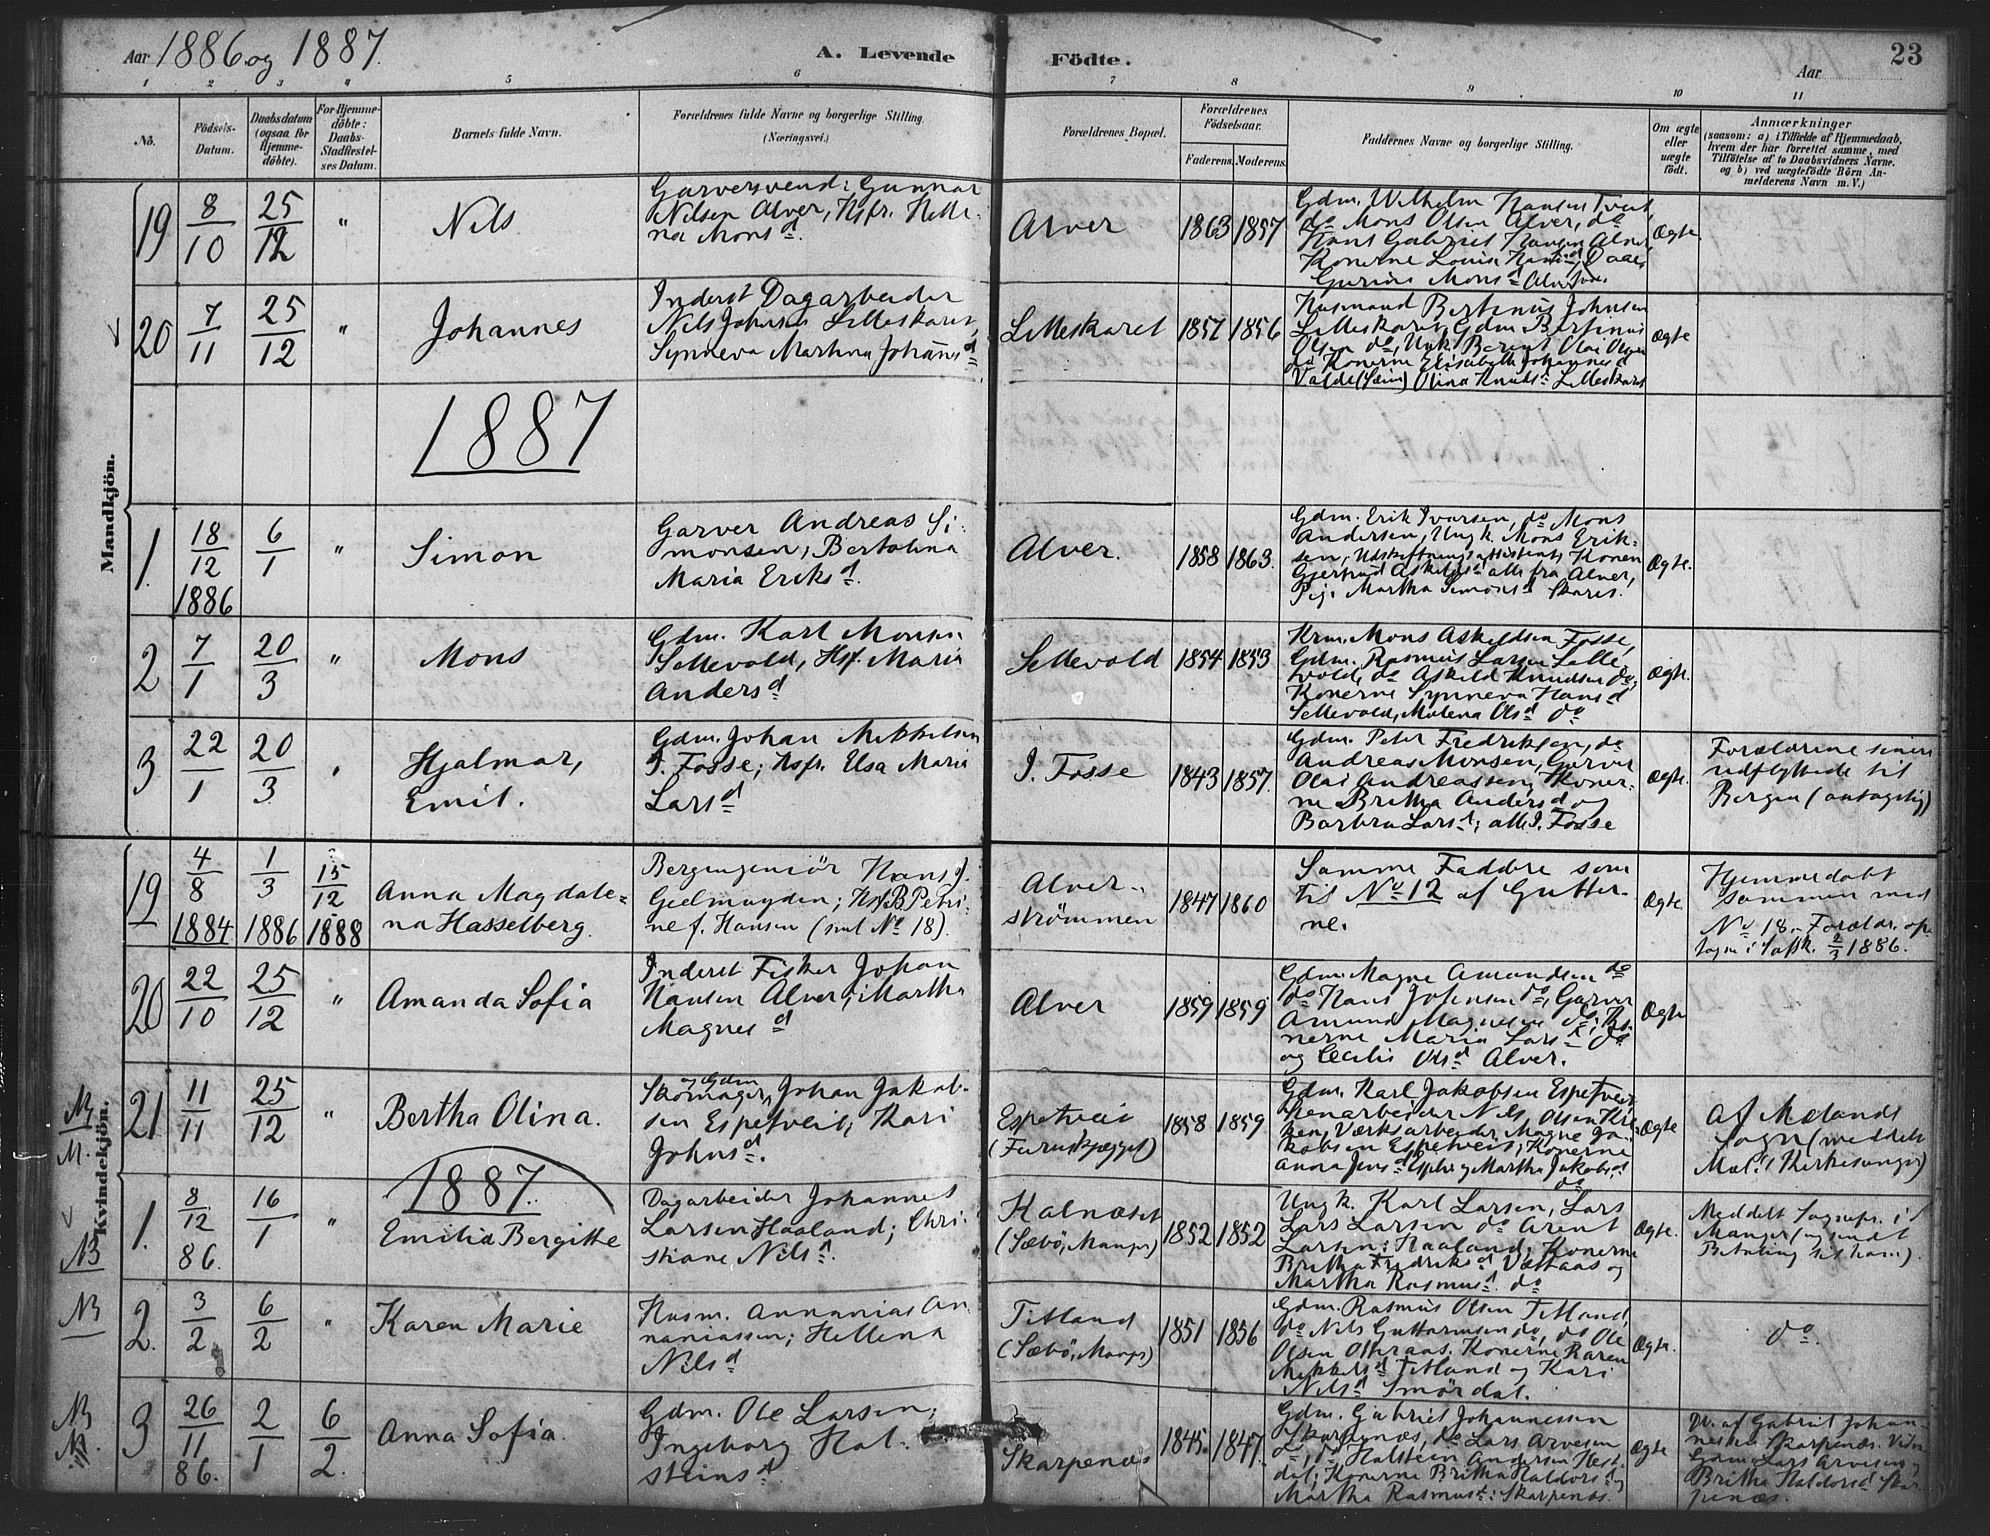 Aar 1886 og 1887.
A. Levende Födte.
Aar
23
1 2 3 4 5 6 7 8 9 10 11
No.
Födsels-Datum.
Daabsdatum (ogsaa for Hjemme-döbte).
For Hjemme-döbte: Daabs-Stadfæstel-ses Datum.
Barnets fulde Navn.
Forældrenes fulde Navne og borgerlige Stilling.
(Næringsvei.)
Forældrenes Bopæl.
Forældrenes Födselsaar.
Faderens. Moderens.
Faddernes Navne og borgerlige Stilling.
Om ægte eller uægte födt.
Anmærkninger
(saasom: a) i Tilfælde af Hjemmedaab, hvem der har forrettet samme, med Tilföielse af to Daabsvidners Navne, og b) ved uægtefödte Börn An-melderens Navn m. V.)
Mandkjön.
19 8/10 25/12 " Nils
Garversvend: Gunnar
Nilsen Alver, Hsfr. Helle-
na Monsd.
Alver 1863 1857
Gdm. Wilhelm Hansen Tveit,
do Mons Olsen Alver, do
Hans Gabriel Hansen Alver,
Konerne Lovise
Gurine Monsd Alver
Ægte
20 7/11 25/12 " Johannes
Inderst Dagarbeider
Nils Johnsen Lilleskaret,
Synneva Martina Johannsd
Lilleskaret 1857 1856
Husmand Bertinus Johnsen
Lilleskaret, Gdm Bertinus
Olsen do, Ungk. Berent Olai Olsen
do Konerne Elisabeth Johannesd
Valde (Seim) Olina Knutsd Lilleskaret
Ægte
1887
1. 18/12 1886 6/1 " Simon
Garver Andreas Si-
monsen, Bertolina
Maria Eriksd.
Alver. 1858 1863.
Gdm. Erik Ivarsen, do Mons
Andersen, Ungk. Mons Erik-
sen, Udskiftningsassistent, Konen
Gjertrud Askildsd alle fra Alver,
Pige Martha Simonsd Skaret.
Ægte.
2 7/1 20/3 " Mons
Gdm. Karl Monsen
Sellevold, Hsf. Maria
Andersd
Sellevold 1854 1853
Krm. Mons Askildsen Fosse,
Gdm. Rasmus Larsen Selle-
vold, do Askild Knudsen do,
Konerne Synneva Hansd
Sellevold, Malena Olsd do
Ægte.
3 22/1 20/3 Hjalmar,
Emil.
Gdm. Johan Mikkelsen
I. Fosse; Hsfr. Elsa Maria
Larsd
I. Fosse 1843 1857.
Gdm. Peter Fredriksen, do
Andreas Monsen, Garver
Olai Andreassen, Koner-
ne Britha Andersd og
Barbra Larsd; alle I. Fosse
Ægte.
Forældrene senere
udflyttede til
Bergen (antagelig)
Kvindekjön.
19 4/8 1884 1/3 1886 15/12 1888
Anna Magdale-
na Hasselberg.
Bergingeniör Hans J.
Gjelmuyden; Hsf B Petri-
ne f. Hansen (smt No 18).
Alver-
strömmen 1847 1860
Samme Faddere som
til No 12 af Gutter-
ne.
Ægte.
Hjemmedöbt
sammen med
No 18. Forældr. op-
tagn i 2/3 1886.
20 22/10 25/12 " Amanda Sofia
Inderst Fisker Johan
Hansen Alver; Martha
Magnesd
Alver 1859 1859
Gdm. Magne Amundsen do
do Hans Johnsen do, Garver
Amund Magnesen do; Ko-
nerne Maria Larsd do
og Cecilie Olsd Alver.
Ægte.
M. 21 11/11 25/12 " Bertha Olina.
Skomager og Gdm Johan Jakob-
sen Espetveit, Kari
Johnsd.
Espetveit
(Furuskjægget) 1858 1859
Gdm. Karl Jakobsen Espetveit
Stenarbeider Nils Olsen
Værksarbeider Magne Ja-
kobsen Espetveit; Konerne
Anna Jensd og Martha Jakobsd
do
Ægte
Af Mælands
Sogn (meddelt
Mæl. Kirkesanger)
1887.
NB 1. 8/12 86. 16/1 " Emilia Bergitte
Dagarbeider Johannes
Larsen Haaland; Chri-
stiane Nilsd
Kalnæset
(Sæbö, Manger) 1852 1852
Ungk. Karl Larsen, Lars
Lars Larsen do Arent
Larsen: Haaland; Konerne
Britha Fredriksd Vættaas og
Martha Rasmusd do
Ægte.
Meddelt Sognepr. i
Manger (og sendt
Betaling til ham).
NB 2. 3/2 6/2 " Karen Marie
Husm. Annanias An-
naniassen; Hellena
Nilsd
Titland
(Sæbö, Manger) 1851 1856
Gdm. Rasmus Olsen Titland,
do Nils Guttormsen do, do Ole
Olsen Konerne Karen
Mikkelsd Titland og Kari
Nilsd Smördal.
Ægte.
do.
NB 3 26/11 86. 2/1 6/2. Anna Sofia.
Gdm. Ole Larsen;
Ingeborg Hal-
steinsd
Skarpenæs 1845. 1847.
Gdm. Gabriel Johannessen
Skarpenæs, do Lars Arvesen
do, do Halstein Andersen Hest-
dal; Konerne Britha Haldorsd og
Martha Rasmusd: Skarpenæs.
Ægte
Dr. af Gabriel Johan-
nessen Skarpenæs. Vidn
Gdm Lars Arvesen og
Britha Haldorsd Skar-
penæs.